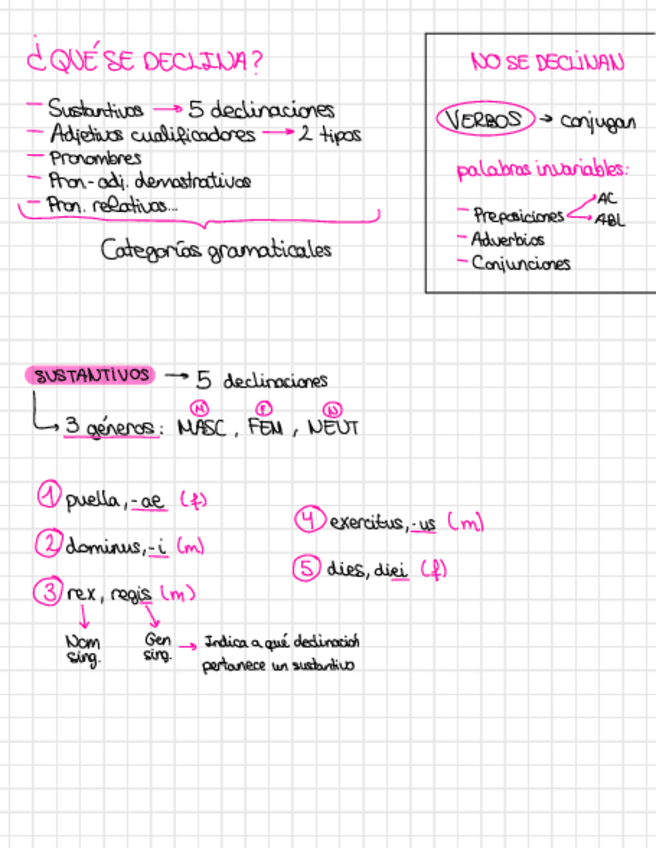 ¿QUÉ SE DECLINA?
- Sustantivos → 5 declinaciones
- Adjetivos cualificadores → 2 tipos
- Pronombres
- Pron-adj. demostrativos
- Pron. relativos...
Categorías gramaticales
NO SE DECLINAN
VERBOS → conjugan
palabras invariables:
- Preposiciones → AC
→ ABL
- Adverbios
- Conjunciones
SUSTANTIVOS → 5 declinaciones
M F N
→ 3 géneros: MASC, FEM, NEUT
1 puella, -ae (f)
2 dominus, -i (m)
3 rex, regis (m)
Nom sing.
Gen sing. → Indica a qué declinación
pertenece un sustantivo
4 exercitus, -us (m)
5 dies, diei (f)